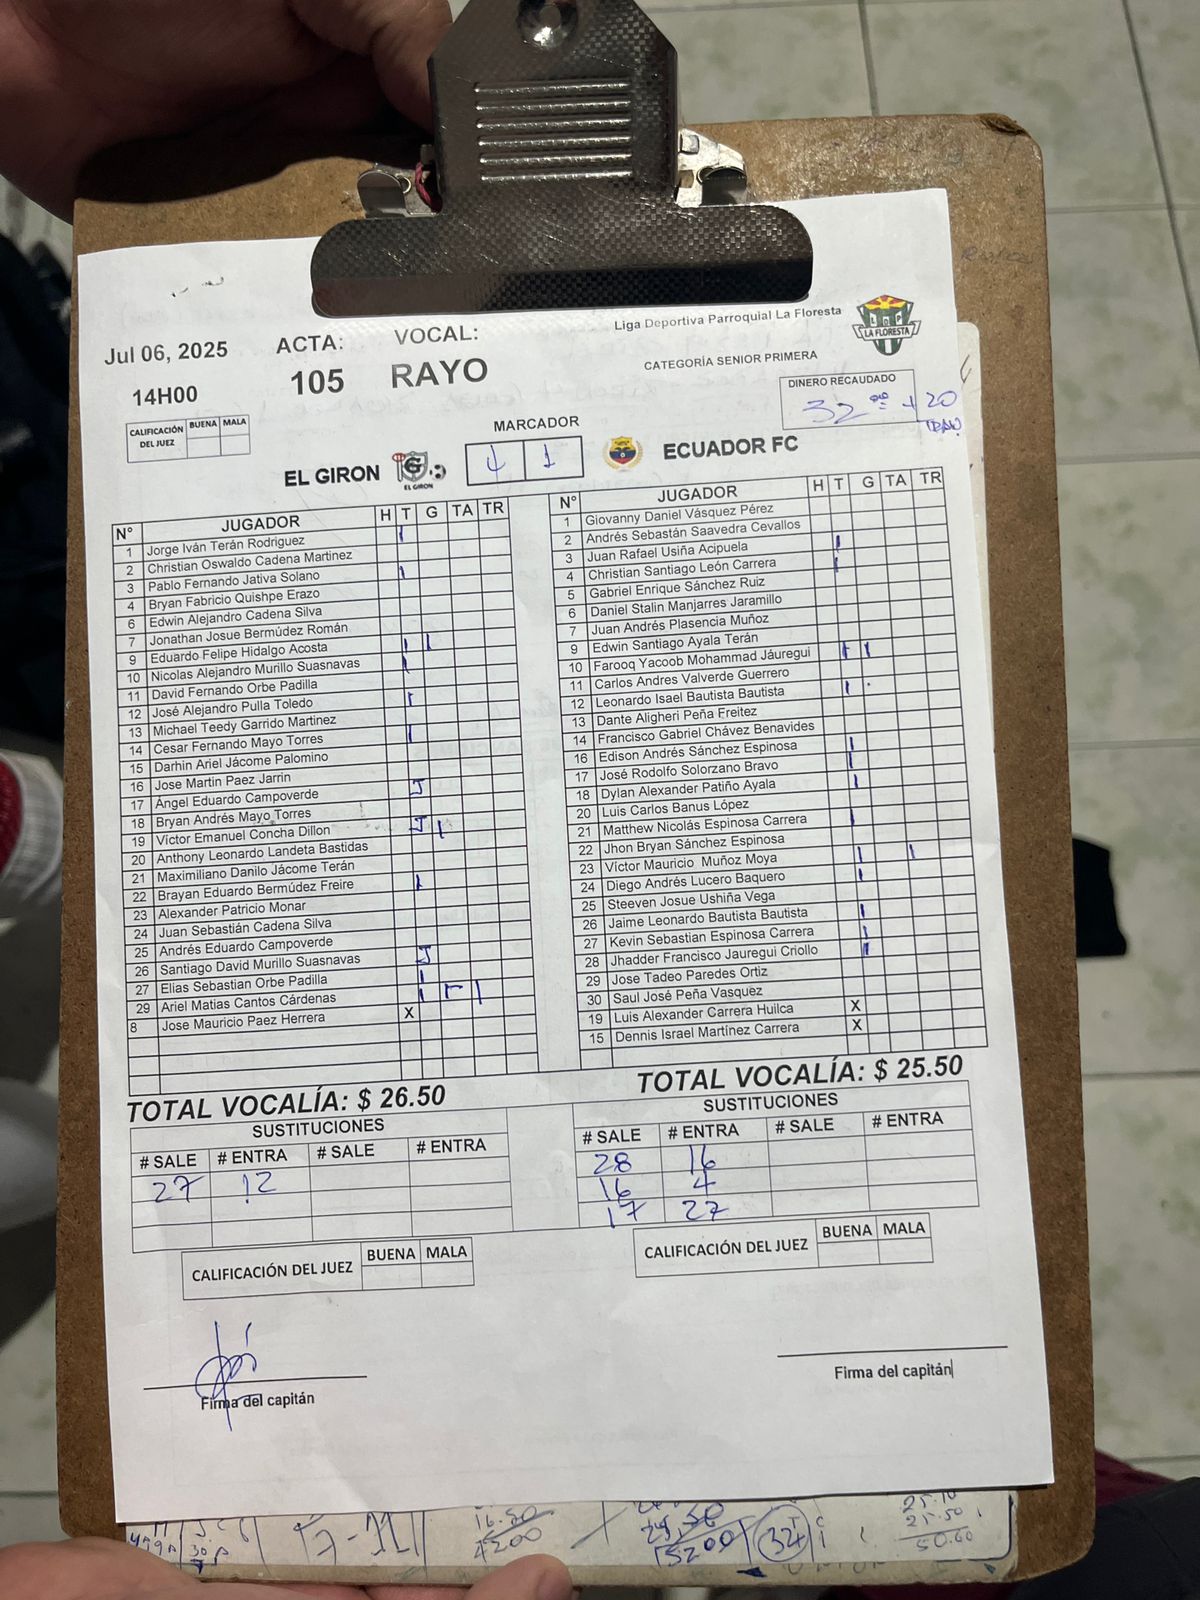 Jul 06, 2025 ACTA: VOCAL: Liga Deportiva Parroquial La Floresta
LA FLORESTA
14H00 105 RAYO CATEGORÍA SENIOR PRIMERA
DINERO RECAUDADO
32 + 20
CALIFICACIÓN DEL JUEZ BUENA MALA
MARCADOR
EL GIRON EL GIRON 1 ECUADOR FC
N° JUGADOR H T G TA TR
1 Jorge Iván Terán Rodriguez
2 Christian Oswaldo Cadena Martinez
3 Pablo Fernando Jativa Solano
4 Bryan Fabricio Quishpe Erazo
6 Edwin Alejandro Cadena Silva
7 Jonathan Josue Bermúdez Román
9 Eduardo Felipe Hidalgo Acosta
10 Nicolas Alejandro Murillo Suasnavas
11 David Fernando Orbe Padilla
12 José Alejandro Pulla Toledo
13 Michael Teedy Garrido Martinez
14 Cesar Fernando Mayo Torres
15 Darhin Ariel Jácome Palomino
16 Jose Martin Paez Jarrin
17 Ángel Eduardo Campoverde
18 Bryan Andrés Mayo Torres
19 Víctor Emanuel Concha Dillon
20 Anthony Leonardo Landeta Bastidas
21 Maximiliano Danilo Jácome Terán
22 Brayan Eduardo Bermúdez Freire
23 Alexander Patricio Monar
24 Juan Sebastián Cadena Silva
25 Andrés Eduardo Campoverde
26 Santiago David Murillo Suasnavas
27 Elias Sebastian Orbe Padilla
29 Ariel Matias Cantos Cárdenas
8 Jose Mauricio Paez Herrera X
TOTAL VOCALÍA: $ 26.50
SUSTITUCIONES
# SALE # ENTRA # SALE # ENTRA
27 12
CALIFICACIÓN DEL JUEZ BUENA MALA
Firma del capitán
N° JUGADOR H T G TA TR
1 Giovanny Daniel Vásquez Pérez
2 Andrés Sebastán Saavedra Cevallos
3 Juan Rafael Usiña Acipuela
4 Christian Santiago León Carrera
5 Gabriel Enrique Sánchez Ruiz
6 Daniel Stalin Manjarres Jaramillo
7 Juan Andrés Plasencia Muñoz
9 Edwin Santiago Ayala Terán
10 Farooq Yacoob Mohammad Jáuregui
11 Carlos Andres Valverde Guerrero
12 Leonardo Isael Bautista Bautista
13 Dante Aligheri Peña Freitez
14 Francisco Gabriel Chávez Benavides
16 Edison Andrés Sánchez Espinosa
17 José Rodolfo Solorzano Bravo
18 Dylan Alexander Patiño Ayala
20 Luis Carlos Banus López
21 Matthew Nicolás Espinosa Carrera
22 Jhon Bryan Sánchez Espinosa
23 Víctor Mauricio Muñoz Moya
24 Diego Andrés Lucero Baquero
25 Steeven Josue Ushiña Vega
26 Jaime Leonardo Bautista Bautista
27 Kevin Sebastian Espinosa Carrera
28 Jhadder Francisco Jauregui Criollo
29 Jose Tadeo Paredes Ortiz
30 Saul José Peña Vasquez
19 Luis Alexander Carrera Huilca X
15 Dennis Israel Martínez Carrera X
TOTAL VOCALÍA: $ 25.50
SUSTITUCIONES
# SALE # ENTRA # SALE # ENTRA
28 16
16 4
17 27
CALIFICACIÓN DEL JUEZ BUENA MALA
Firma del capitán
25.50
50.60